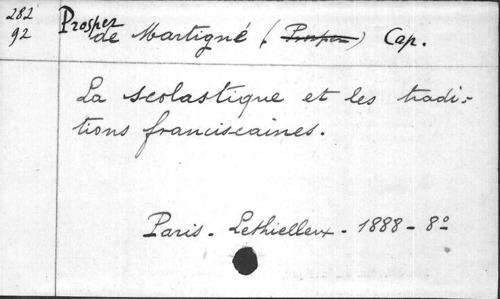 282
92
Prosper
de Martigné (Prosper) Cap.
La scolastique et les tradi-
tions franciscaines.
Paris - Lethielleux - 1888 - 8º